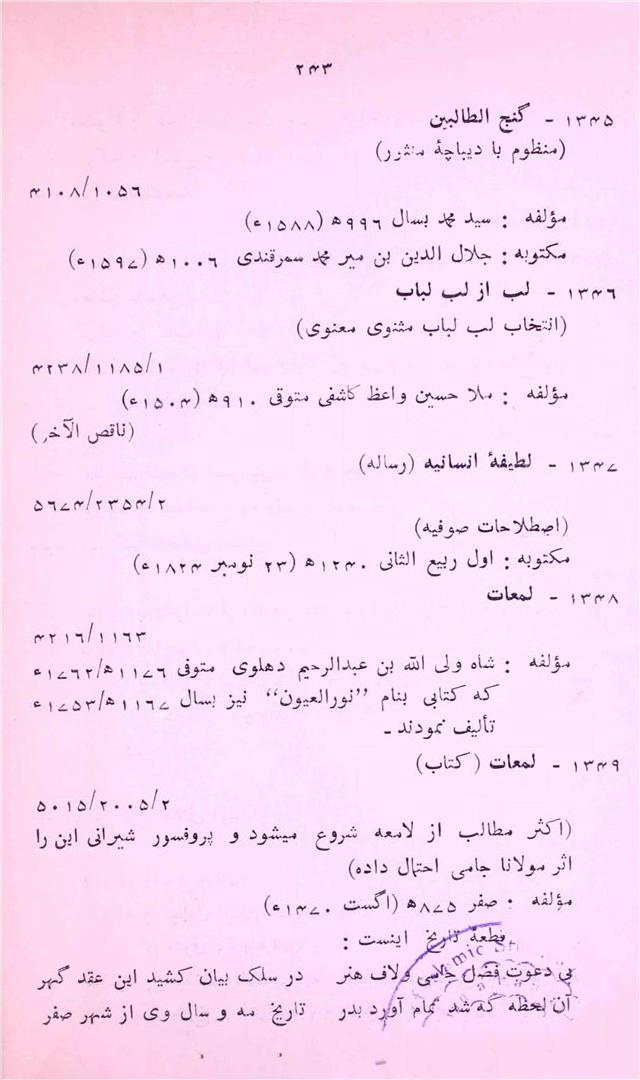 ۲۴۳
۱۳۴۵ - گنج الطالبین
(منظوم با دیباچهٔ منثور)
۴۱۰۸/۱۰۵۶
مؤلفه : سید محمد بسال ۹۹۶ھ (۱۵۸۸ء)
مکتوبه : جلال الدین بن میر محمد سمرقندی ۱۰۰۶ھ (۱۵۹۷ء)
۱۳۴۶ - لب از لب لباب
(انتخاب لب لباب مثنوی معنوی)
۴۲۳۸/۱۱۸۵/۱
مؤلفه : ملا حسین واعظ کاشفی متوفی ۹۱۰ھ (۱۵۰۴ء)
(ناقص الآخر)
۱۳۴۷ - لطیفهٔ انسانیه (رساله)
۵۶۷۴/۲۳۵۴/۲
(اصطلاحات صوفیه)
مکتوبه : اول ربیع الثانی ۱۲۴۰ھ (۲۳ نومبر ۱۸۲۴ء)
۱۳۴۸ - لمعات
۴۲۱۶/۱۱۶۳
مؤلفه : شاه ولی الله بن عبدالرحیم دهلوی متوفی ۱۱۷۶ھ/۱۷۶۲ء
که کتابی بنام ”نورالعیون“ نیز بسال ۱۱۶۷ھ/۱۷۵۳ء
تألیف نمودند ـ
۱۳۴۹ - لمعات (کتاب)
۵۰۱۵/۲۰۰۵/۲
(اکثر مطالب از لامعه شروع میشود و پروفسور شیرانی این را
اثر مولانا جامی احتمال داده)
مؤلفه : صفر ۸۷۵ھ (اگست ۱۴۷۰ء)
قطعهٔ تاریخ اینست :
بی دعوت فضل جامی ولاف هنر در سلک بیان کشید این عقد گهر
آن لحظه که شد تمام آورد بدر تاریخ مه و سال وی از شهر صفر